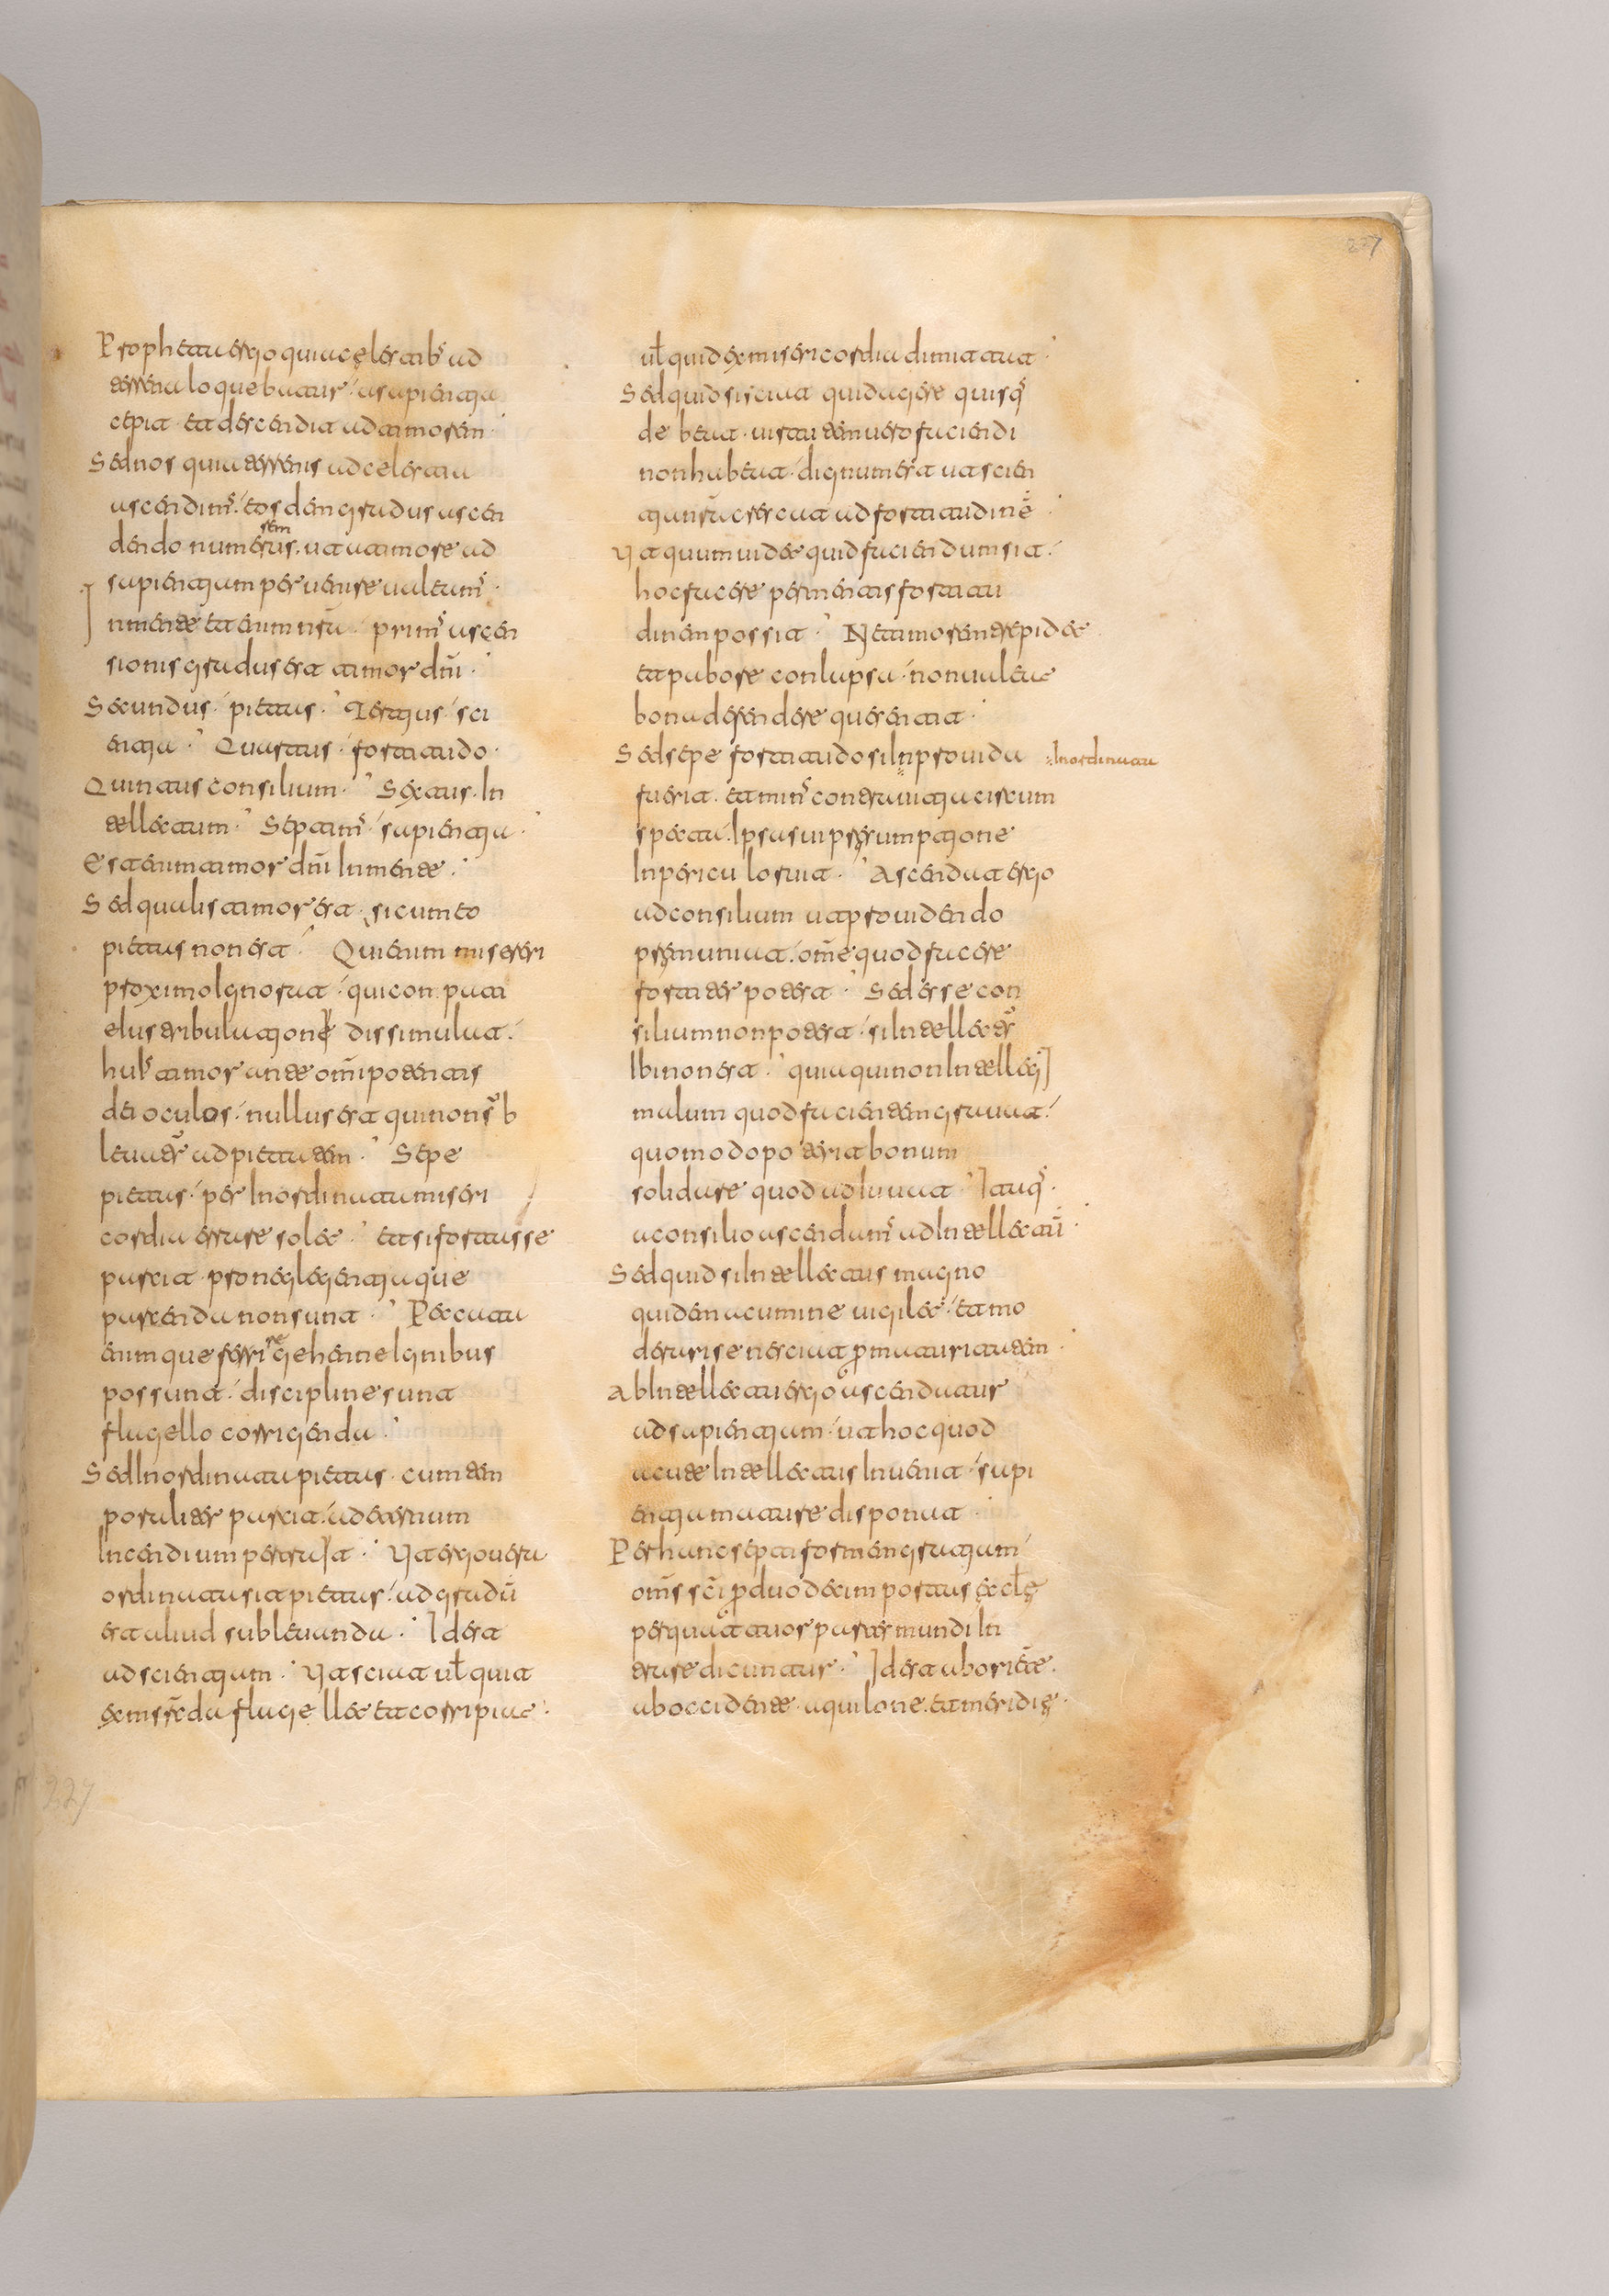 227
Propheta ergo quia cęlestibꝰ ad
terrena loquebatur · a sapientia
cepit · et descendit ad timorem ·
Sed nos quia a terrenis ad celestia
ascendimꝰ · eosdem gradus ascen
dendo numerus sem · ut a timore ad
sapientiam peruenire ualeamꝰ ·
In mente etenim nr̃a · primꝰ ascen
sionis gradus est timor dn̄i ·
Secundus · pietas · Tertius · sci
entia · Quartus · fortitudo ·
Quintus consilium · Sextus · In
tellectum · Septimꝰ · sapientia ·
Est enim timor dn̄i In mente ·
Sed qualis timor est · si cum eo
pietas non est · Qui enim misereri
proximo Ignorat · qui con pati
eius tribulationę dissimulat ·
huiꝰ timor ante om̄ipotentis
dei oculos · nullus est qui non sꝰb
leuatꝰr ad pietatem · Sepe
pietas · per Inordinatam miseri
cordia errare solet · et si fortasse
parcit · pro neglegentia que
parcenda non sunt · Peccata
enim que feriri re gehene Ignibus
possunt · discipline sunt
flagello corrigenda ·
Sed Inordinata pietas · cum tem
poraliter parcit · ad eternum
Incendium pertrait · Ut ergo uera
ordinata sit pietas · ad gradū
est aliud subleuanda · Id est
ad scientiam · Ut sciat ul̄ quit
ex mis̄rcda flagellet et corripiat ·
ul̄ quid ex misericordia dimittat ·
Sed quid si sciat quid agere quisqꝰ
debeat · uirtutem uero faciendi
non habeat · dignum est ut scien
tia nr̃a crescat ad fortitudinē ·
Ut quum uidet quid faciendum sit ·
hoc facere per mentis fortitu
dinem possit · Ne timorem trepidet
et pabore conlapsa · non ualeat
bona defendere que sentit ·
Sed sepe fortitudo si Inprouida Inordinata
fuerit · et minꝰ contra uitia circum
specta · Ipsa sui pręsumptione
In periculo ruit · Ascendat ergo
ad consilium ut prouidendo
pręmuniat · om̄e quod facere
fortiter potest · Sed esse con
silium non potest · si Intellectꝰr
Ibi non est · quia qui non Intellegi]
malum quod facientem grauat ·
quomodo poterit bonum
solidare quod adiuuat · Itaqꝰ ·
a consilio ascendamꝰ ad Intellectū ·
Sed quid si Intellectus magno
quidem acumine uigilet · et mo
derari se nesciat ꝑ maturitatem ·
Ab Intellectu ergo ascendatur
ad sapientiam · ut hoc quod
acute Intellectus Inuenit · sapi
entia mature disponat ·
Per hunc septiformem gratiam ·
om̄s sc̄i ꝑ duodecim portas eccl̄ę
per quattuor partes mundi In
trare dicuntur · Id est ab oriēte ·
ab occidente · aquilone · et meridię ·
227